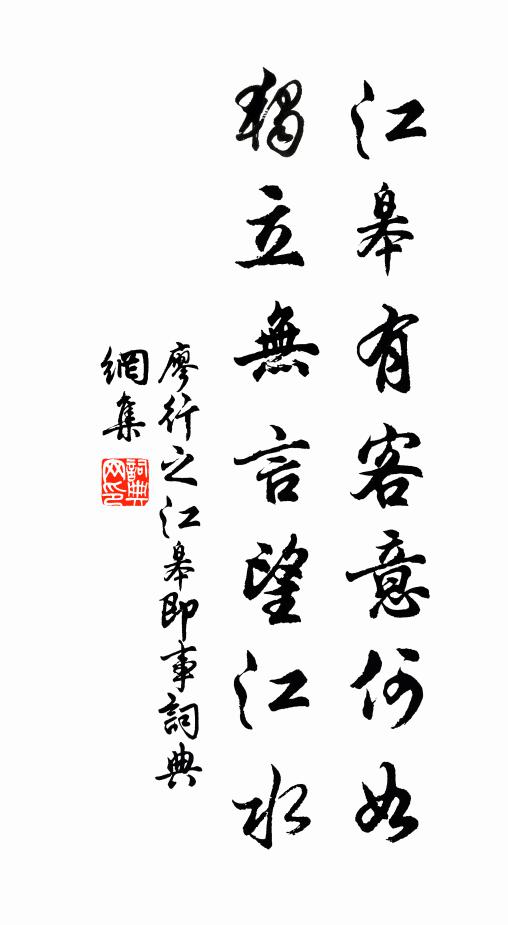 江皋有客意何如
獨立無言望江水
廖行之江皋即事詞典
網集
詞典網印